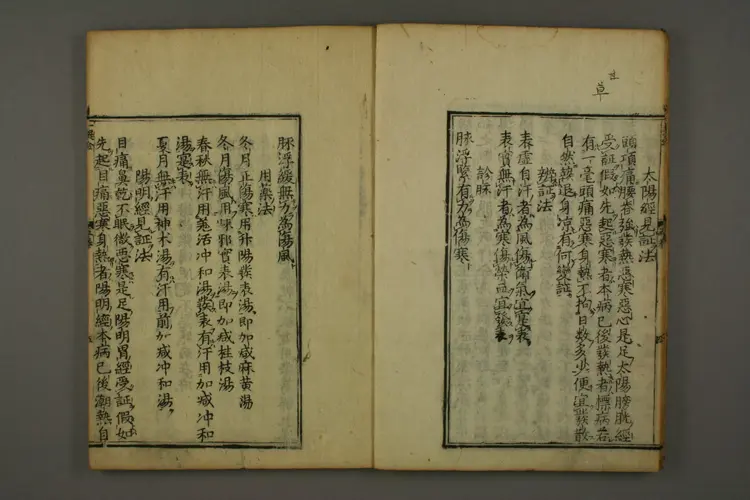 太陽經見証法
頭項痛腰脊強發熱惡寒惡心是足太陽膀胱經
受証假如先起惡寒者本病已後發熱者標病若
有一毫頭痛惡寒身熱不拘日數多少便宜發散
自然熱退身凉有何變証
辨証法
表虛自汗者為風傷衛氣宜實表
表實無汗者為寒傷榮血宜發表
診脉
脉浮緊有力為傷寒
脉浮緩無力為傷風
用藥法
冬月正傷寒用升陽發表湯即加减麻黃湯
冬月傷風用疎邪實表湯即加减桂枝湯
春秋無汗用羗活冲和湯發表有汗用加减冲和
湯實表
夏月無汗用神木湯有汗用前加减冲和湯
陽明經見証法
目痛鼻乾不眠微惡寒是足陽明胃經受証假如
先起目痛惡寒身熱者陽明經本病已後潮熱自
草